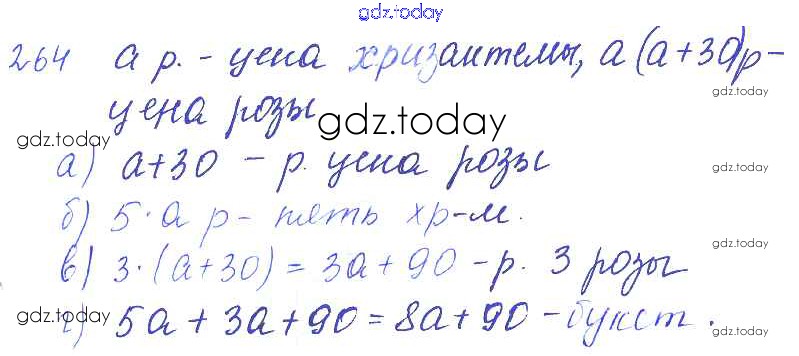 gdz.today
264 а р. - цена хризантемы, а (а+30)р -
gdz.today
цена розы
gdz.today
gdz.today
а) а+30 - р. цена розы
gdz.today
б) 5·а р - пять хр-м.
в) 3·(а+30) = 3а+90 - р. 3 розы
gdz.today
г) 5а+3а+90=8а+90 - букет.
gdz.today
gdz.today